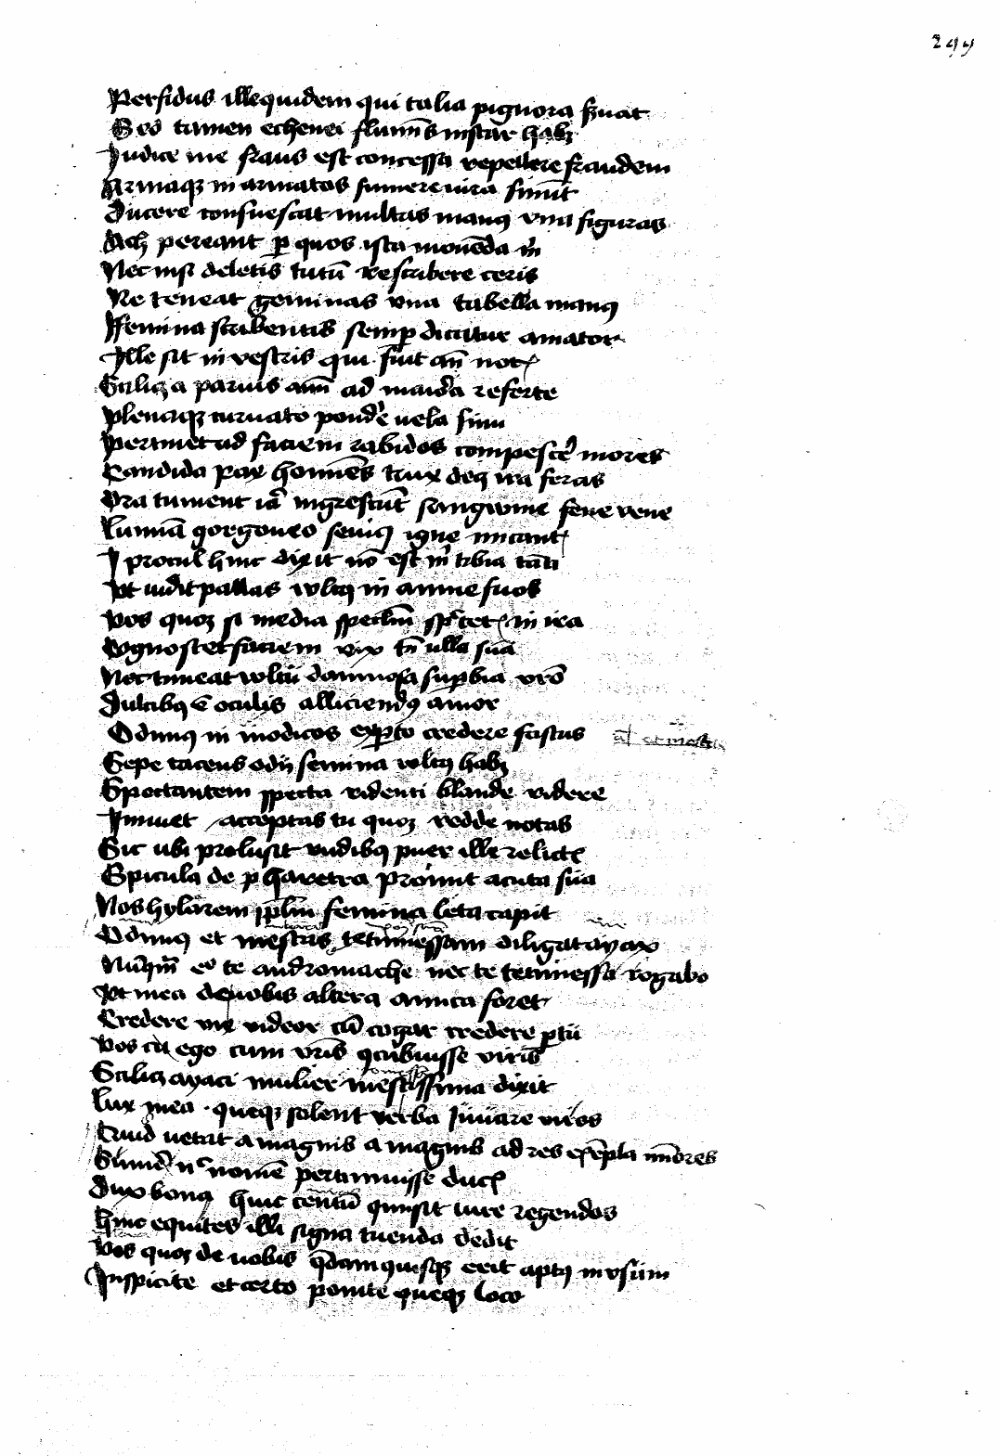 299
Perfidus ille quidem qui talia pignora s̄uat
Sed tamen echenei fluminis instar habꝫ
Iudice me fraus est concessa repellere fraudem
Armaqꝫ in armatos sumere iura sinūt
Ducere consuescat multas manꝰ una figuras
Ach pereant ꝑ quos ista monēda m̄
Nec nisi deletis tutū rescribere ceris
Ne teneat geminas una tabella manꝰ
Ffemina scribentis semꝑ dicatur amator
Ille sit in vestris qui fuit an̄ not
Si licꝫ a paruis aīm ad maiora referte
Plenaqꝫ curuato pondē uela sinu
Pertinet ad faciem rabidos compescē mores
Candida pax homīes trux decꝫ ira feras
Ora tument irā nigrescūt sanguine fene vene
Lumīa gorgoneo seuiꝰ igne micant
I procul hinc dixit nō est m̄ tibia tāti
Vt uidit pallas vultꝰ in amne suos
Vos quoqꝫ si media speculū spectetis in ira
Cognoscet faciem vix tn̄ ulla suā
Nec timeat vultū damnosa suꝑbia vr̄o
Dulcibꝰ ē oculis alliciendꝰ amor
Odimꝰ in modicos exꝑto credere fastus
Sepe tacens odij semina vultꝰ habꝫ
Spectantem specta ridenti blande videre
Innuet acceptas tu quoqꝫ redde notas
Sic ubi prolusit rudibꝰ puer ille relictis
Spicula de pharetra promit acuta sua
Nos hylarem pp̄lm femina leta capit
Odimꝰ et mestas tetimessam diligat ayax
Nūqm̄ eo te andromache nec te tetimessa rogabo
Vt mea de uobis altera amica foret
Credere vix videor cū cogar credere ꝑtū
Vos cū ego cum vr̄is ꝯcubuisse viris
Scilicꝫ ayaci mulier mestissima dixit
Lux mea queqꝫ solent verba iuuare viros
Quid uetat a magnis a magnis ad res exēpla mīores
Sumē nᶜ nomē pertimuisse ducis
Dux bonꝰ huic centū qui sit iure regendos
Hinc equites illi signa tuenda dedit
Vos quoqꝫ de uobis qdam quisqꝫ erit aptꝰ in usum
Inspicite et certo ponite queqꝫ loco